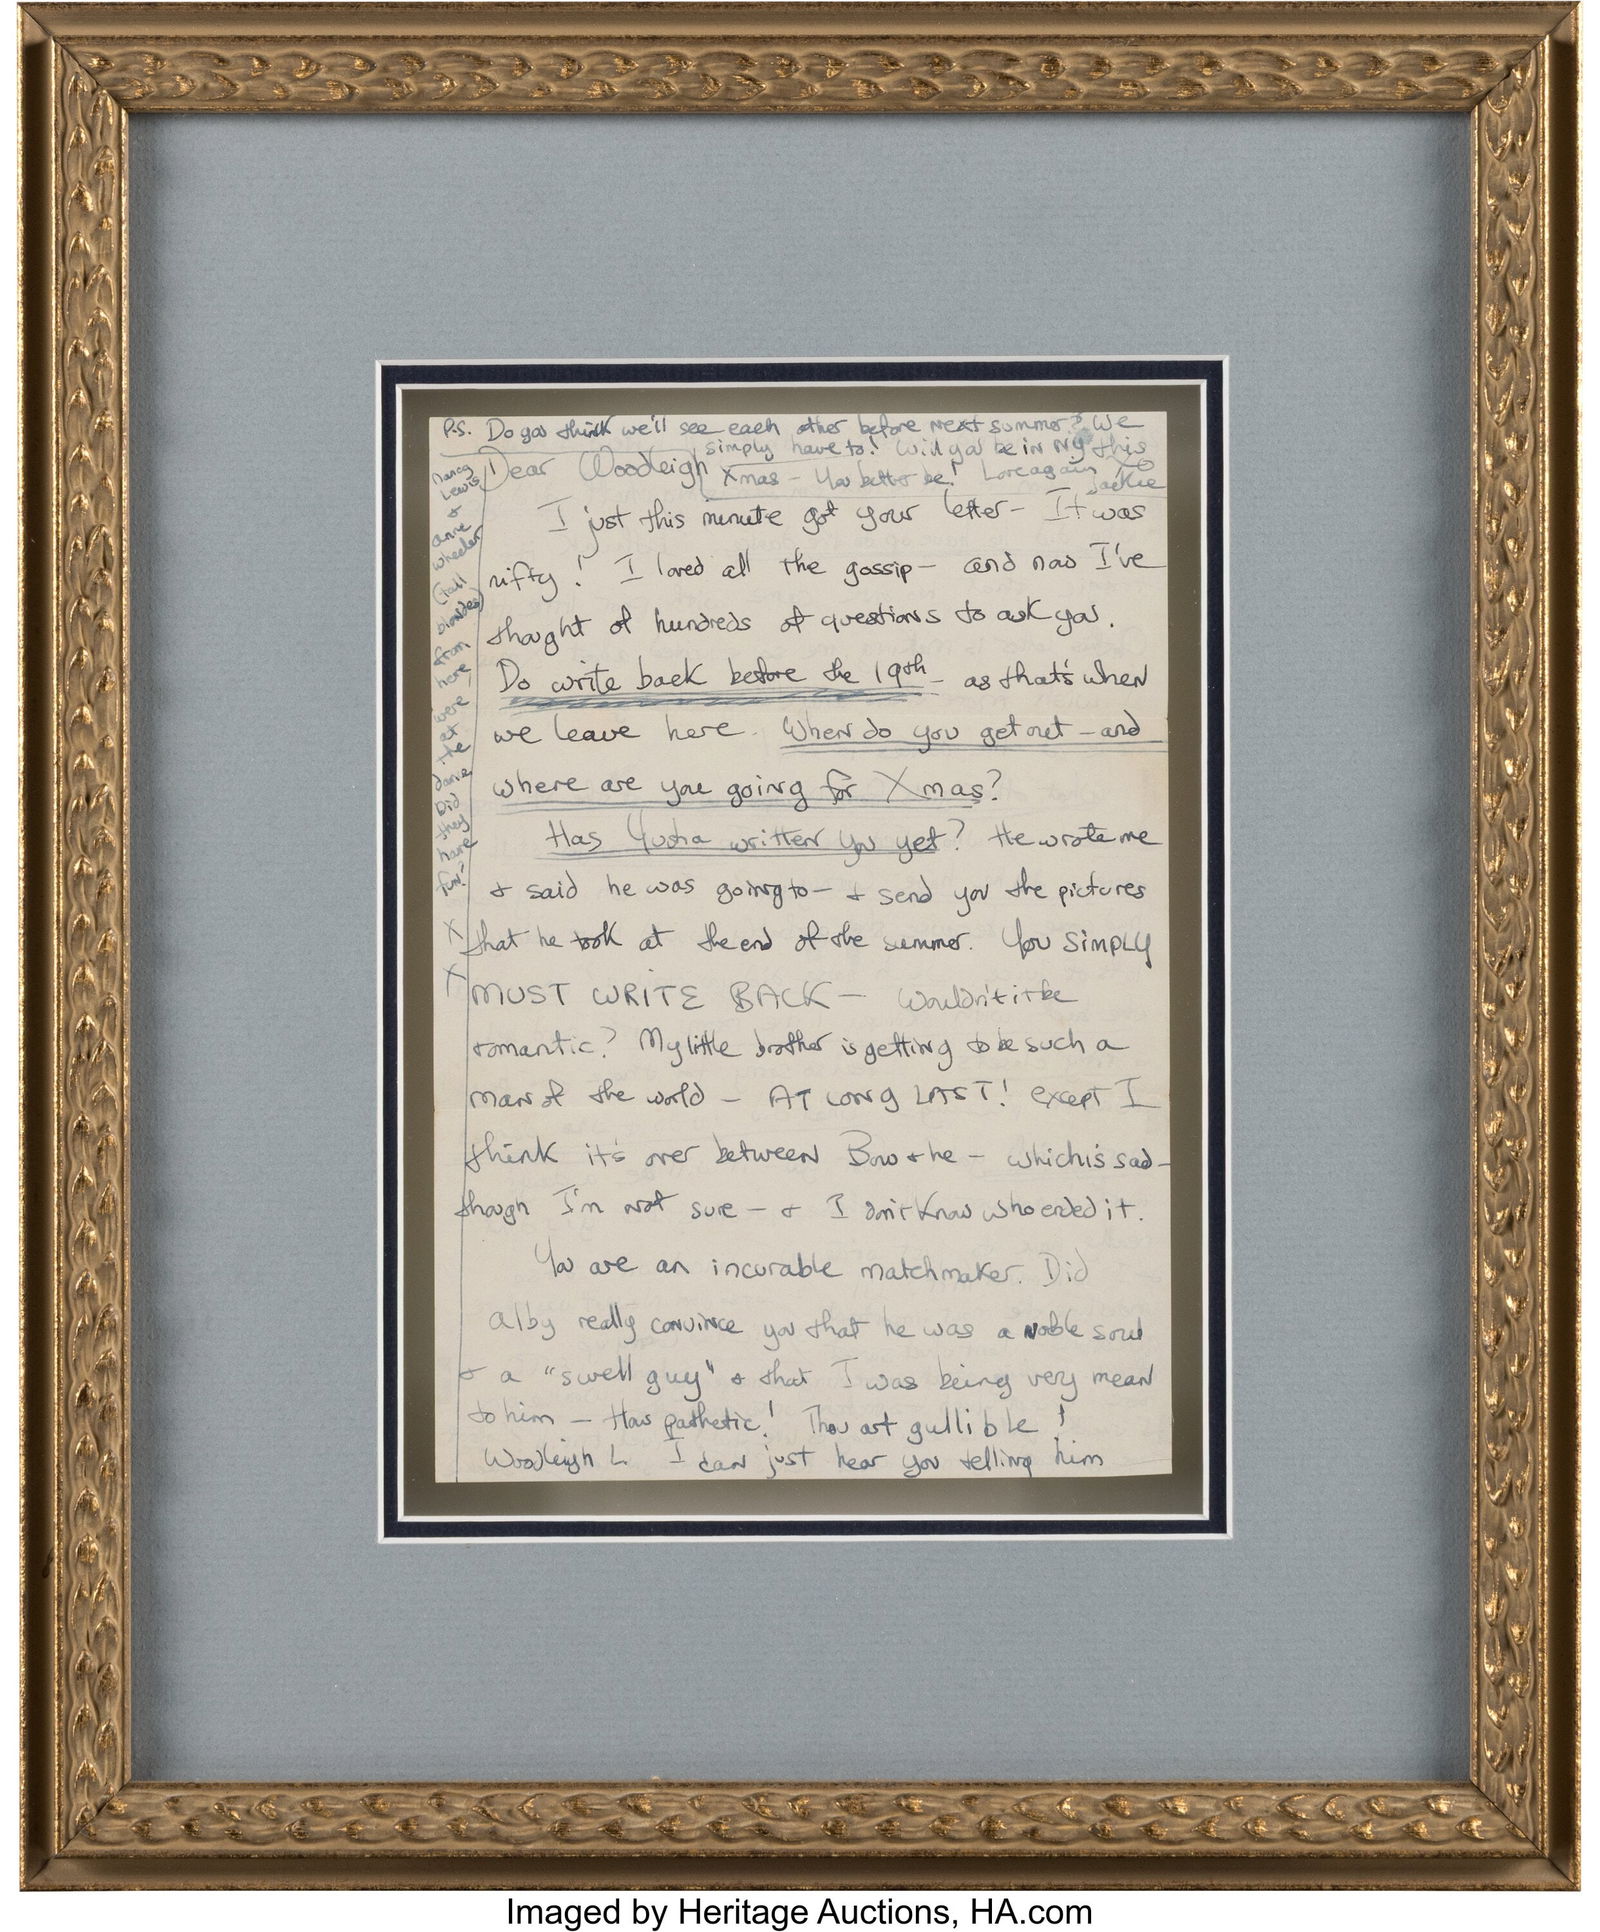 P.S. Do you think we'll see each other before next summer? We
simply have to! Will you be in NY this
Xmas - You better be! Love again
Jackie
Dear Woodleigh
Nancy
Lewis
+
anne
wheeler
(tall
blondes)
from
here,
were
at
the
dance
Did
they
have
fun?
I just this minute got your letter - It was
nifty! I loved all the gossip - and now I've
thought of hundreds of questions to ask you.
Do write back before the 19th - as that's when
we leave here. When do you get out - and
where are you going for Xmas?
Has Yusha written you yet? He wrote me
+ said he was going to - + send you the pictures
X that he took at the end of the summer. You SIMPLY
X MUST WRITE BACK - Wouldn't it be
romantic? My little brother is getting to be such a
man of the world - AT LONG LAST! except I
think it's over between Bow + he - which is sad -
though I'm not sure - + I don't know who ended it.
You are an incurable matchmaker. Did
Alby really convince you that he was a noble soul
+ a "swell guy" + that I was being very mean
to him - How pathetic! Thou art gullible!
Woodleigh L. I can just hear you telling him
Imaged by Heritage Auctions, HA.com